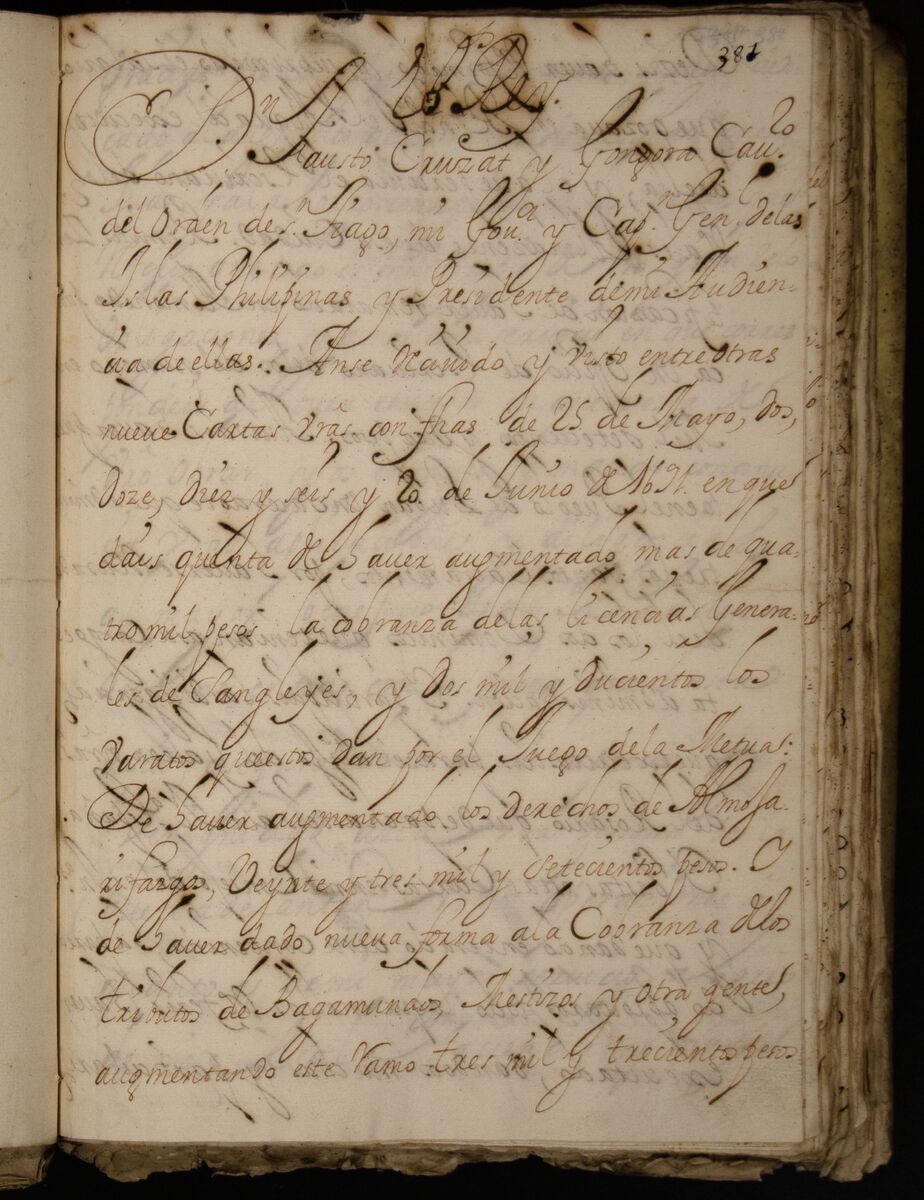 381
El Rey.
Dn Fausto Cruzat y Gongora Cauro.
del Orden de sn. Tiago, mi Gour. y Capn. Gen. delas
Islas Philipinas y Presidente demi Audien-
cia de ellas. Anse reciuido y visto entre otras
nueue Cartas vrãs. con fhas de 25 de Mayo, dos,
doze, diez y seis y 20. de Junio de 1691. en que
dais quenta de hauer augmentado mas de qua-
tro mil pesos la cobranza delas licencias Genera-
les de Sangleyes, y dos mil y ducientos los
varatos que estos dan por el Juego dela Metua:
De hauer augmentado los derechos de Almoja-
rifazgos, Veynte y tres mil y setecientos pesos. Y
de hauer dado nueva forma ala Cobranza de los
tributos de Bagamundos, Mestizos y otra gente,
augmentando este ramo tres mil y trecientos pesos